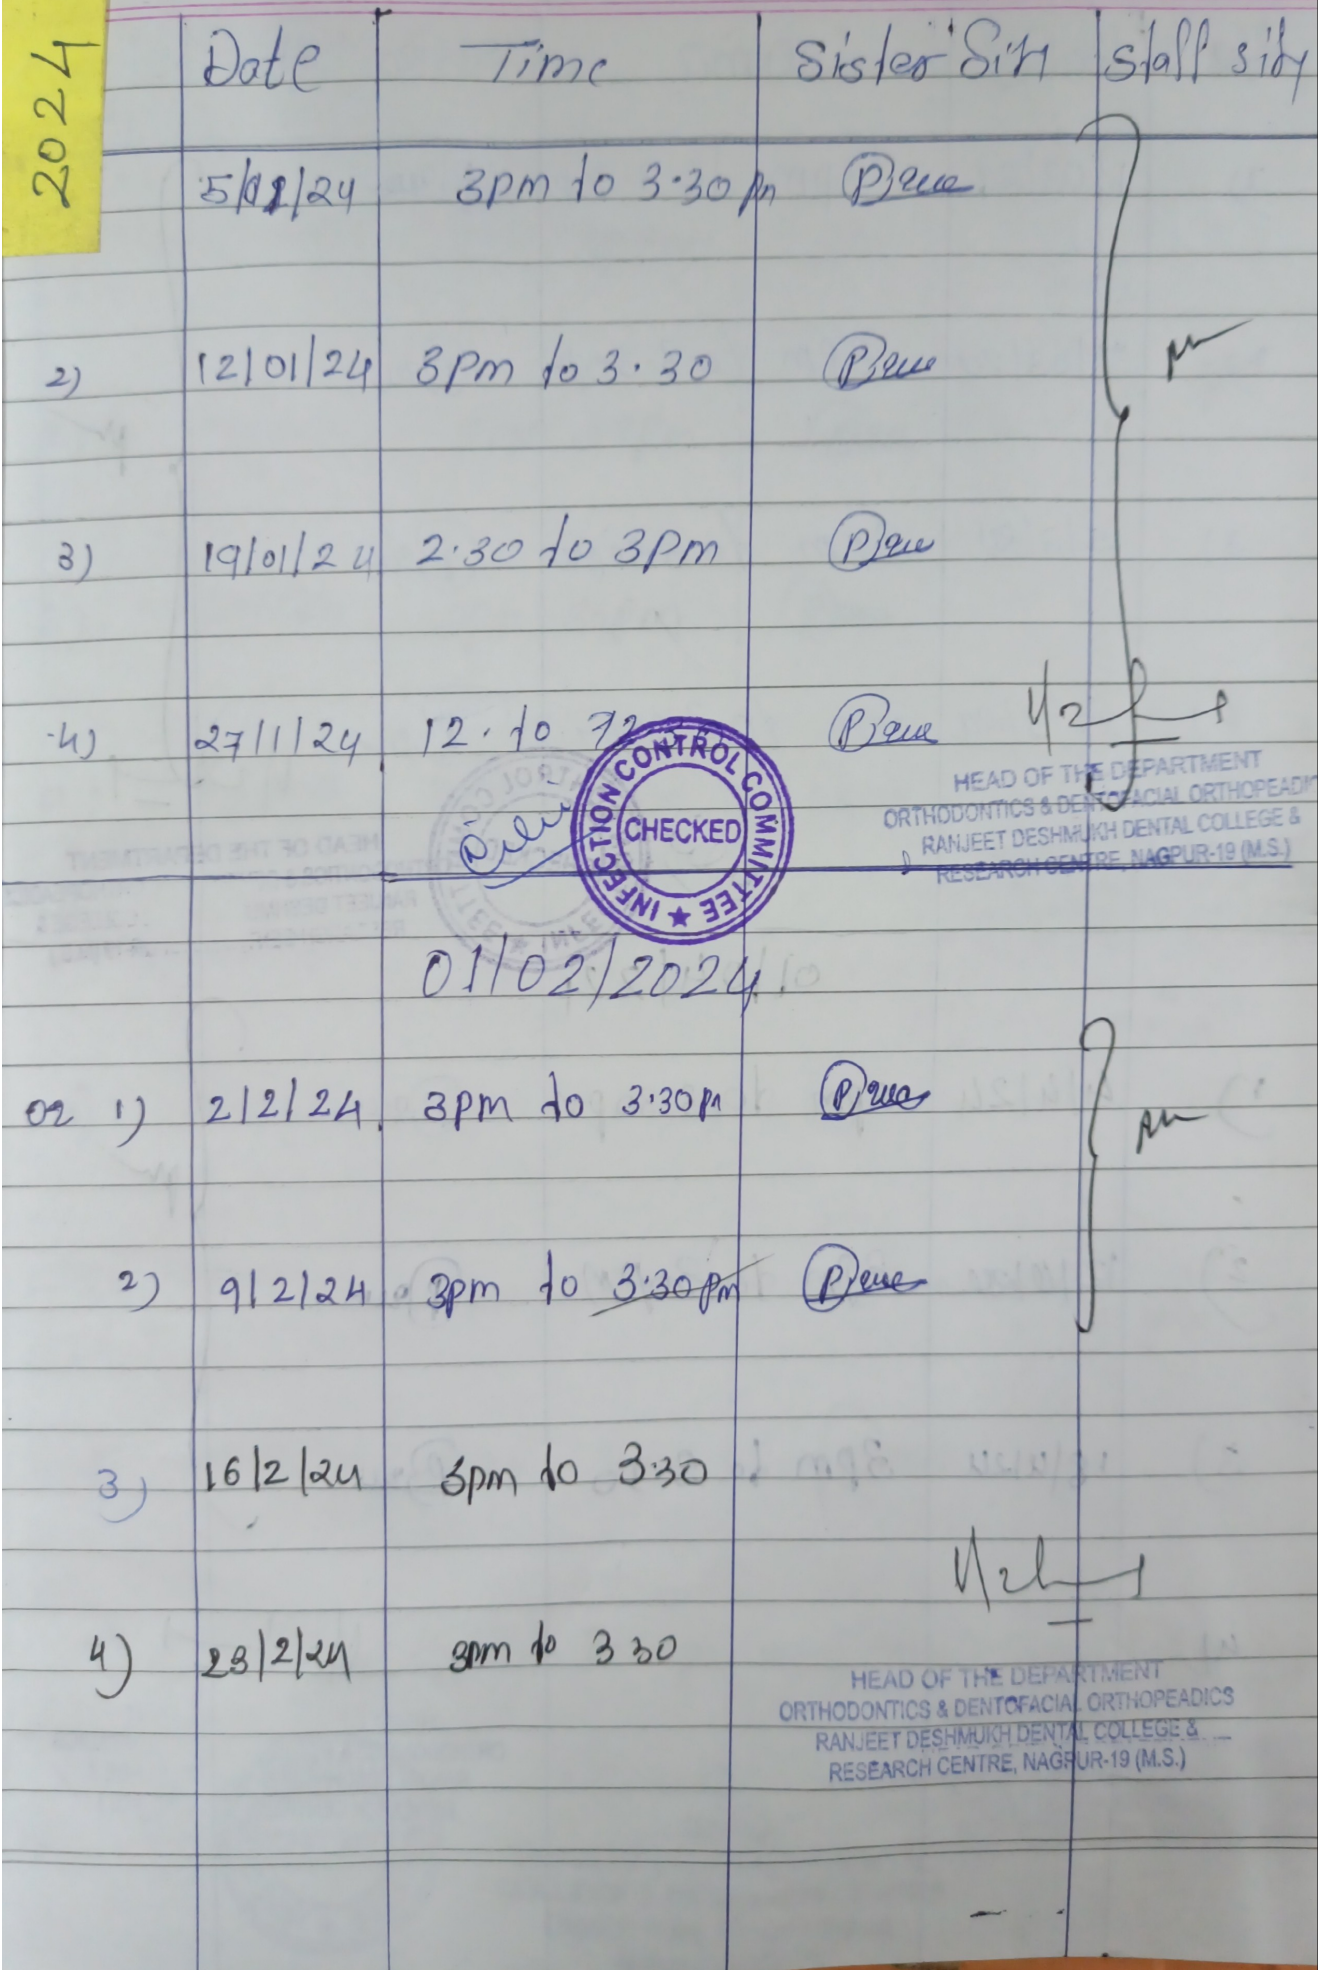 2024
Date Time Sister Sin Staff sity
5/01/24 3pm to 3.30 pm
2) 12/01/24 3pm to 3.30
3) 19/01/24 2.30 to 3pm
4) 27/1/24 12. to 12
INFECTION CONTROL COMMITTEE ★
CHECKED
HEAD OF THE DEPARTMENT
ORTHODONTICS & DENTOFACIAL ORTHOPEADICS
RANJEET DESHMUKH DENTAL COLLEGE &
RESEARCH CENTRE, NAGPUR-19 (M.S.)
01/02/2024.
02 1) 2/2/24 3pm to 3.30pm
2) 9/2/24 3pm to 3.30pm
3) 16/2/24 3pm to 3.30
4) 23/2/24 3pm to 3 30
HEAD OF THE DEPARTMENT
ORTHODONTICS & DENTOFACIAL ORTHOPEADICS
RANJEET DESHMUKH DENTAL COLLEGE &
RESEARCH CENTRE, NAGPUR-19 (M.S.)